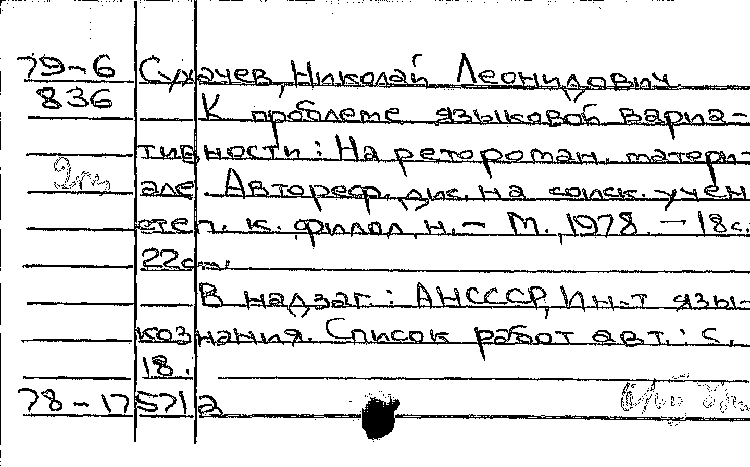 79-6 Сухачев, Николай Леонидович
836 К проблеме языковой вариа-
тивности: На ретороман. матери-
2 але. Автореф. дис. на соиск. учен.
степ. к. филол. н. - М., 1978. - 18 с.
22 см.
В надзаг.: АН СССР, Ин-т язы-
кознания. Список работ авт.: с.
18.
78-17571а